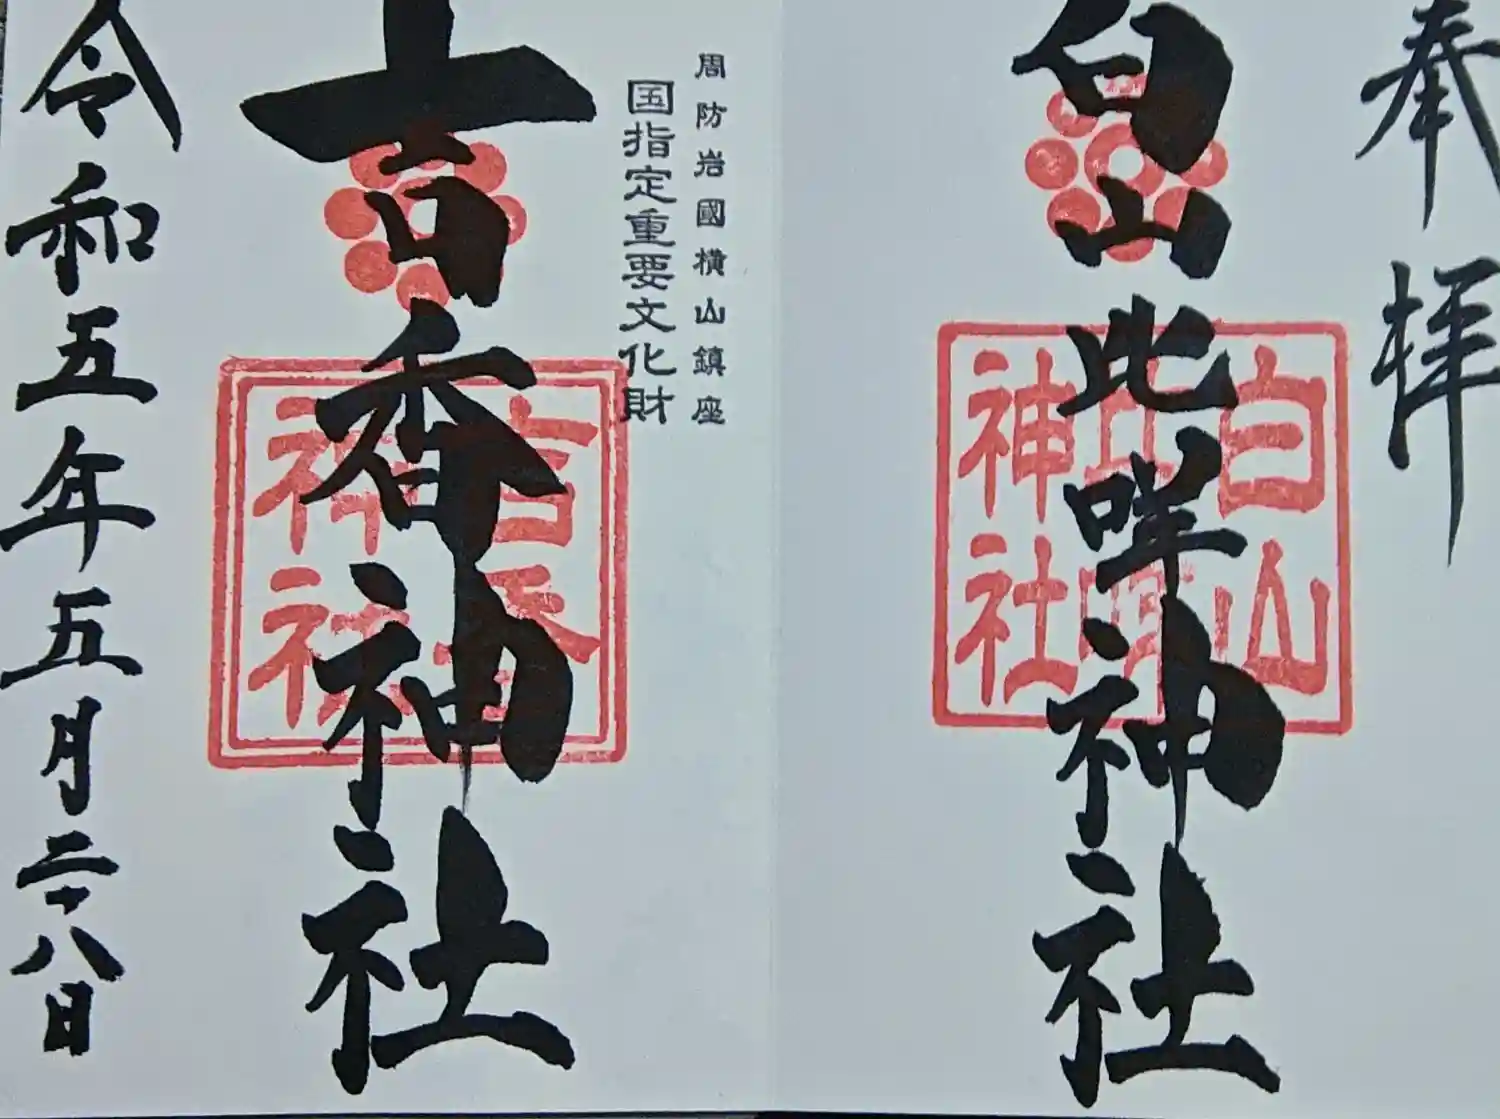 奉拝
白山比咩神社
白山
比咩
神社
周防岩國横山鎮座
国指定重要文化財
吉香神社
吉香
神社
令和五年五月二十八日